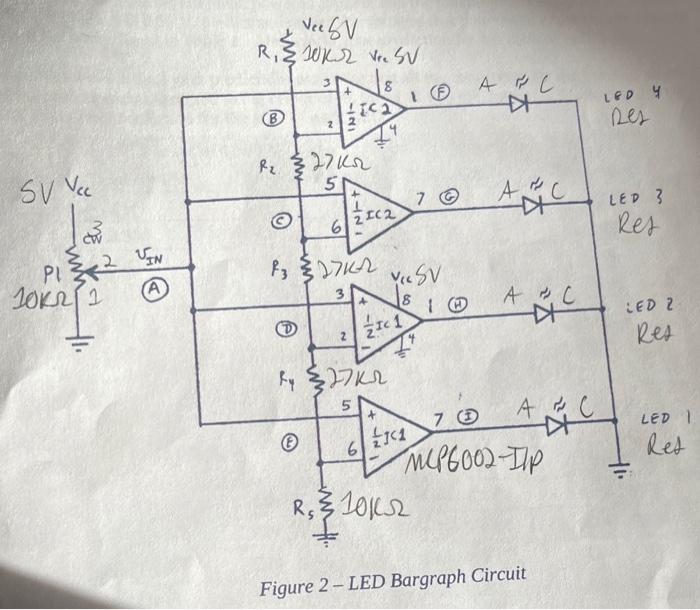 Vcc 5V
R1 10KΩ Vcc 5V
3 + 8 1 F A C LED 4
1/2 IC2 Red
B 2 - 4
R2 27KΩ
5V Vcc 5 + 7 G A C LED 3
1/2 IC2 Red
C 6 -
3
CW
2 VIN
P1 A
10KΩ 1
R3 27KΩ Vcc 5V
3 + 8 1 H A C LED 2
1/2 IC1 Red
D 2 - 4
R4 27KΩ
5 + 7 I A C LED 1
1/2 IC1 Red
E 6 -
MCP6002-I/P
R5 10KΩ
Figure 2 – LED Bargraph Circuit